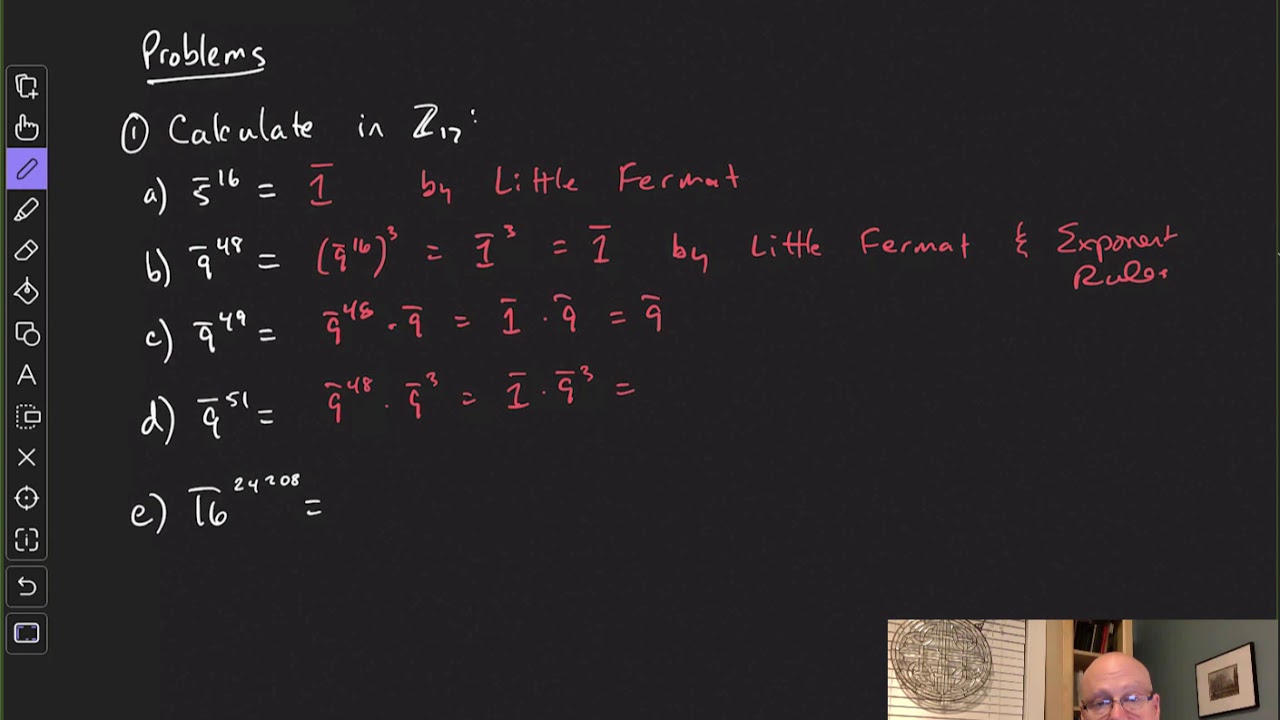 Problems
① Calculate in ℤ₁₇:
a) 5̄¹⁶ = 1̄ by Little Fermat
b) 9̄⁴⁸ = (9̄¹⁶)³ = 1̄³ = 1̄ by Little Fermat & Exponent
Rules
c) 9̄⁴⁹ = 9̄⁴⁸ · 9̄ = 1̄ · 9̄ = 9̄
d) 9̄⁵¹ = 9̄⁴⁸ · 9̄³ = 1̄ · 9̄³ =
e) 1̄6̄²⁴²⁰⁸ =